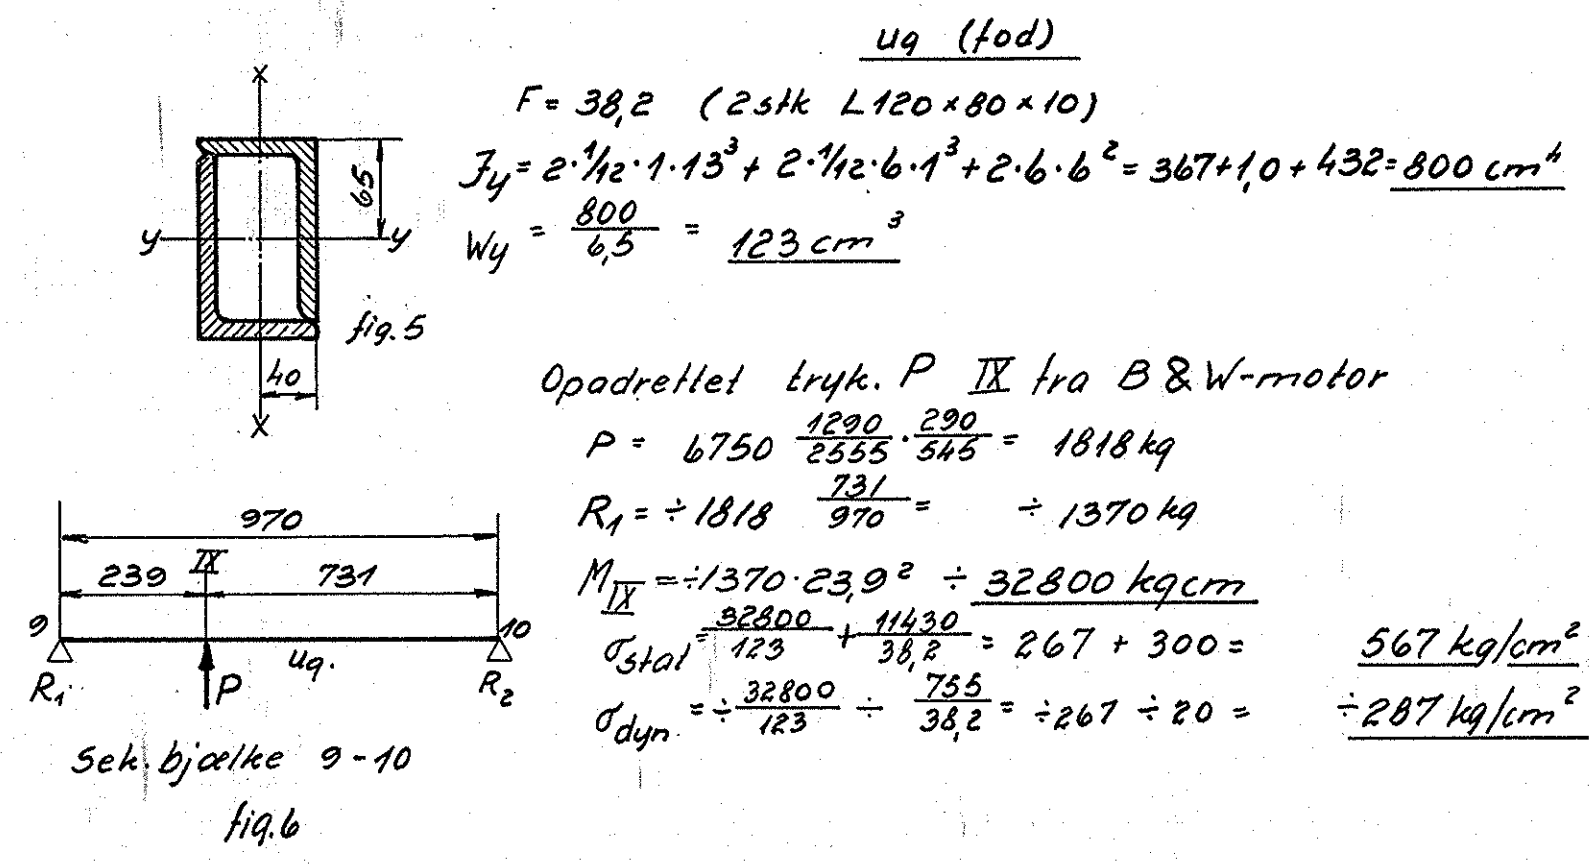 ug (fod)
F = 38,2 (2 stk L 120 × 80 × 10)
Jy = 2·1/12·1·13³ + 2·1/12·6·1³ + 2·6·6² = 367+1,0 + 432 = 800 cm⁴
Wy = 800/6,5 = 123 cm³
x
65
y
y
fig. 5
40
x
Opadrettet tryk. P IX fra B & W-motor
P = 6750 1290/2555 · 290/545 = 1818 kg
R₁ = ÷ 1818 731/970 = ÷ 1370 kg
M IX = ÷1370·23,9² ÷ 32800 kgcm
σstat = 32800/123 + 11430/38,2 = 267 + 300 = 567 kg/cm²
σdyn. = ÷ 32800/123 ÷ 755/38,2 = ÷267 ÷ 20 = ÷287 kg/cm²
970
239 IX 731
9 10
ug.
R₁. P R₂
Sek. bjælke 9-10
fig. 6